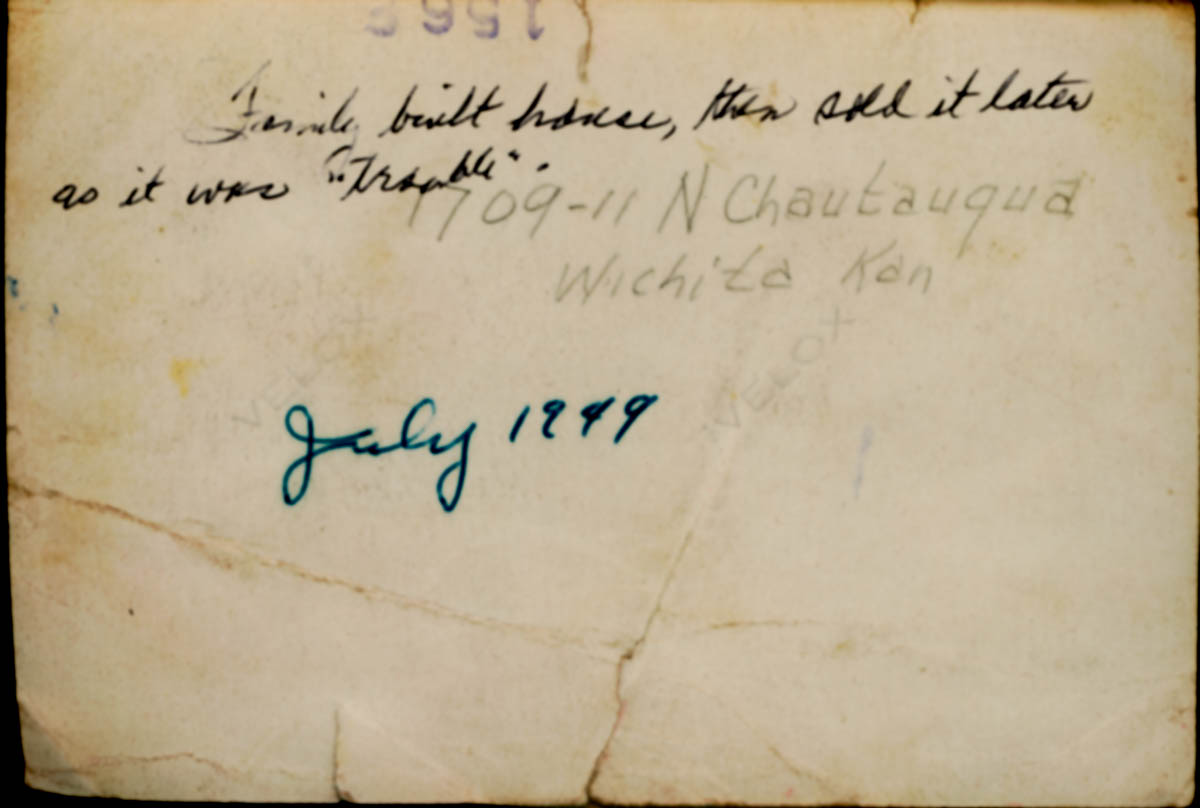 1566
Family built house, then sold it later
as it was "Trouble".
1709-11 N Chautauqua
Wichita Kan
VELOX VELOX
July 1949